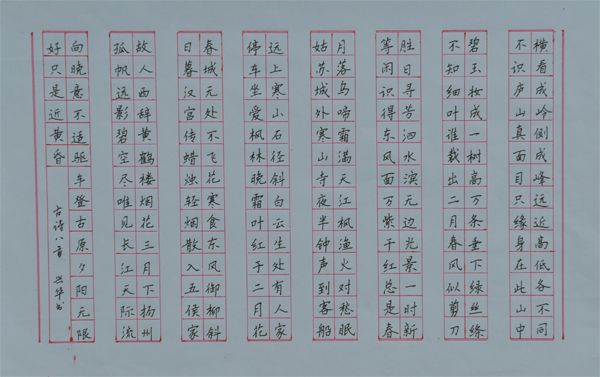 横看成岭侧成峰远近高低各不同
不识庐山真面目只缘身在此山中
碧玉妆成一树高万条垂下绿丝绦
不知细叶谁裁出二月春风似剪刀
胜日寻芳泗水滨无边光景一时新
等闲识得东风面万紫千红总是春
月落乌啼霜满天江枫渔火对愁眠
姑苏城外寒山寺夜半钟声到客船
远上寒山石径斜白云生处有人家
停车坐爱枫林晚霜叶红于二月花
春城无处不飞花寒食东风御柳斜
日暮汉宫传蜡烛轻烟散入五侯家
故人西辞黄鹤楼烟花三月下扬州
孤帆远影碧空尽唯见长江天际流
向晚意不适驱车登古原夕阳无限
好只是近黄昏
古诗八首 兴华书